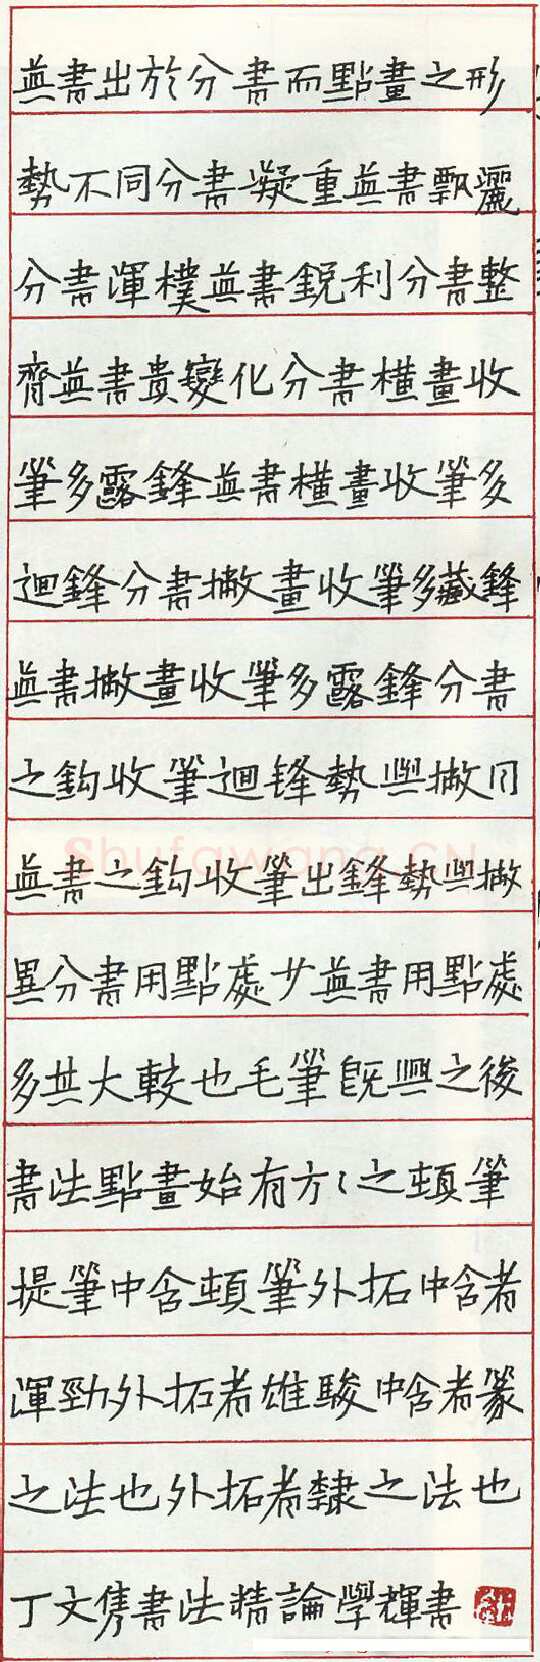 真書出於分書而點畫之形
勢不同分書凝重真書飄灑
分書渾樸真書銳利分書整
齊真書貴變化分書橫畫收
筆多露鋒真書橫畫收筆多
迴鋒分書撇畫收筆多藏鋒
真書撇畫收筆多露鋒分書
之鈎收筆迴鋒勢與撇同
真書之鈎收筆出鋒勢與撇
異分書用點處少真書用點處
多其大較也毛筆既興之後
書法點畫始有方〻之頓筆
提筆中含頓筆外拓中含者
渾勁外拓者雄駿中含者篆
之法也外拓者隸之法也
丁文雋書法精論學輝書
Shufawang.CN